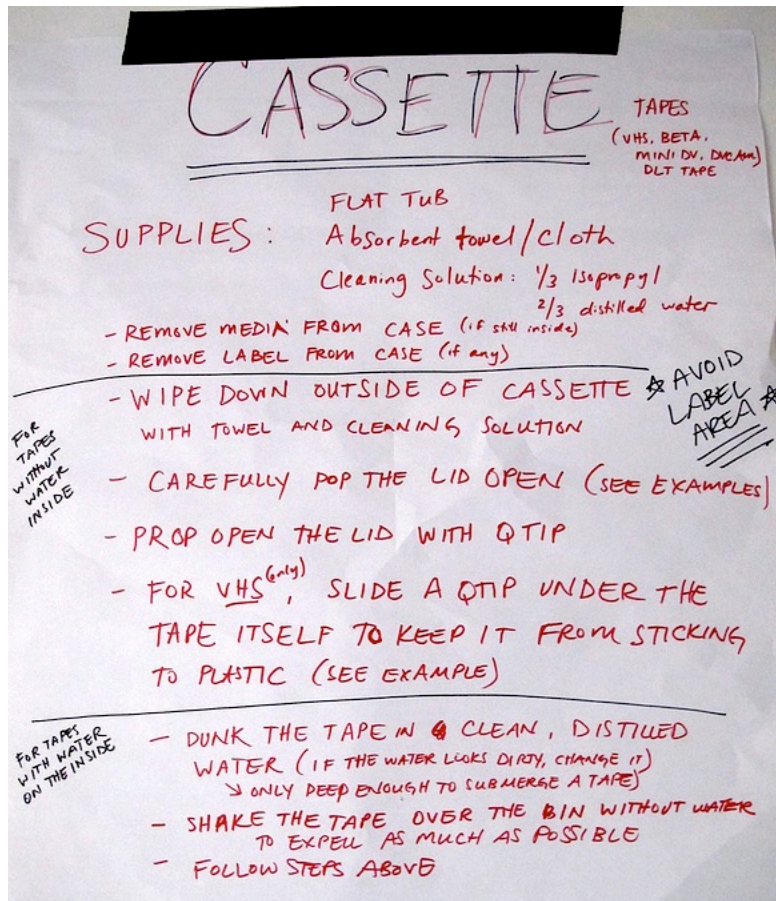 CASSETTE TAPES
(VHS, BETA,
MINI DV, DVCAM)
DLT TAPE
FLAT TUB
SUPPLIES: Absorbent towel/cloth
Cleaning Solution: 1/3 Isopropyl
2/3 distilled water
- REMOVE MEDIA FROM CASE (if still inside)
- REMOVE LABEL FROM CASE (if any)
FOR
TAPES
WITHOUT
WATER
INSIDE
- WIPE DOWN OUTSIDE OF CASSETTE
WITH TOWEL AND CLEANING SOLUTION
☆ AVOID
LABEL
AREA ☆
- CAREFULLY POP THE LID OPEN (SEE EXAMPLES)
- PROP OPEN THE LID WITH QTIP
- FOR VHS (only), SLIDE A QTIP UNDER THE
TAPE ITSELF TO KEEP IT FROM STICKING
TO PLASTIC (SEE EXAMPLE)
FOR TAPES
WITH WATER
ON THE INSIDE
- DUNK THE TAPE IN CLEAN, DISTILLED
WATER (IF THE WATER LOOKS DIRTY, CHANGE IT)
↘ ONLY DEEP ENOUGH TO SUBMERGE A TAPE)
- SHAKE THE TAPE OVER THE BIN WITHOUT WATER
TO EXPELL AS MUCH AS POSSIBLE
- FOLLOW STEPS ABOVE